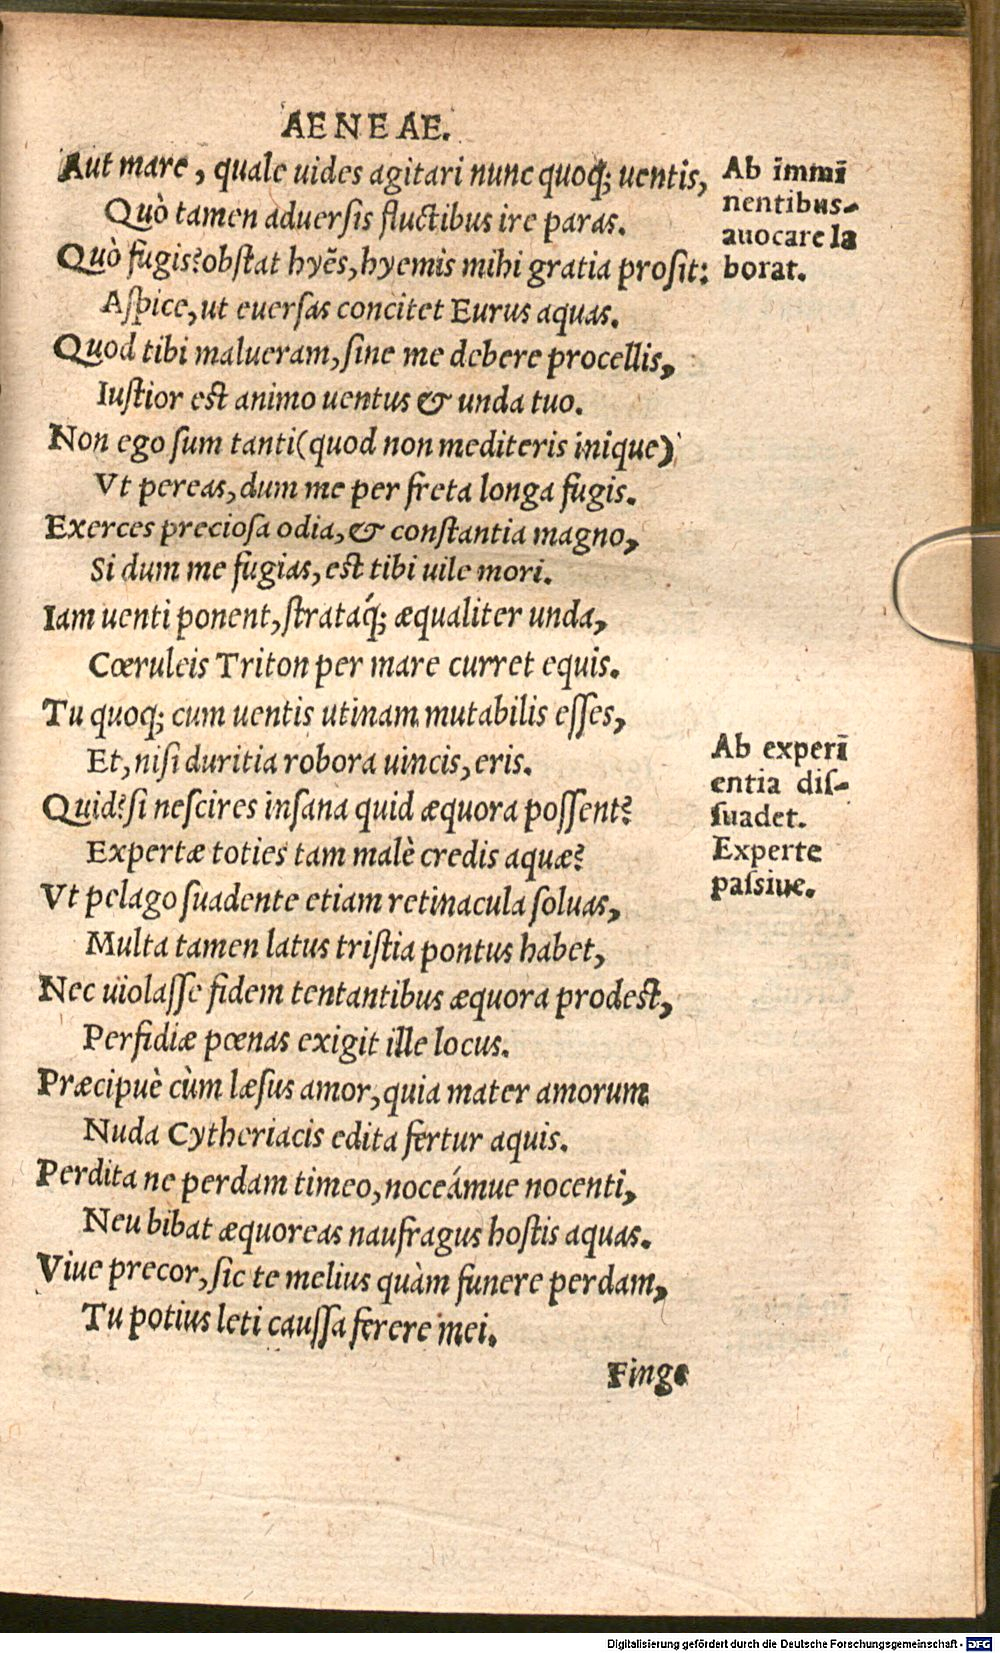 AENEAE.
Aut mare, quale uides agitari nunc quoq; uentis,
Quò tamen aduersis fluctibus ire paras.
Quò fugis? obstat hyẽs, hyemis mihi gratia prosit:
Aspice, ut euersas concitet Eurus aquas.
Quod tibi malueram, sine me debere procellis,
Iustior est animo uentus & unda tuo.
Non ego sum tanti (quod non mediteris inique)
Vt pereas, dum me per freta longa fugis.
Exerces preciosa odia, & constantia magno,
Si dum me fugias, est tibi uile mori.
Iam uenti ponent, strataq́; æqualiter unda,
Cœruleis Triton per mare curret equis.
Tu quoq; cum uentis utinam mutabilis esses,
Et, nisi duritia robora uincis, eris.
Quid? si nescires insana quid æquora possent?
Expertæ toties tam malè credis aquæ?
Vt pelago suadente etiam retinacula soluas,
Multa tamen latus tristia pontus habet,
Nec uiolasse fidem tentantibus æquora prodest,
Perfidiæ pœnas exigit ille locus.
Præcipuè cùm læsus amor, quia mater amorum
Nuda Cytheriacis edita fertur aquis.
Perdita ne perdam timeo, noceámue nocenti,
Neu bibat æquoreas naufragus hostis aquas.
Viue precor, sic te melius quàm funere perdam,
Tu potius leti caussa ferere mei.
Finge
Ab ĩmmĩ
nentibus-
auocare la
borat.
Ab experĩ
entia dis-
suadet.
Experte
passiue.
Digitalisierung gefördert durch die Deutsche Forschungsgemeinschaft - DFG